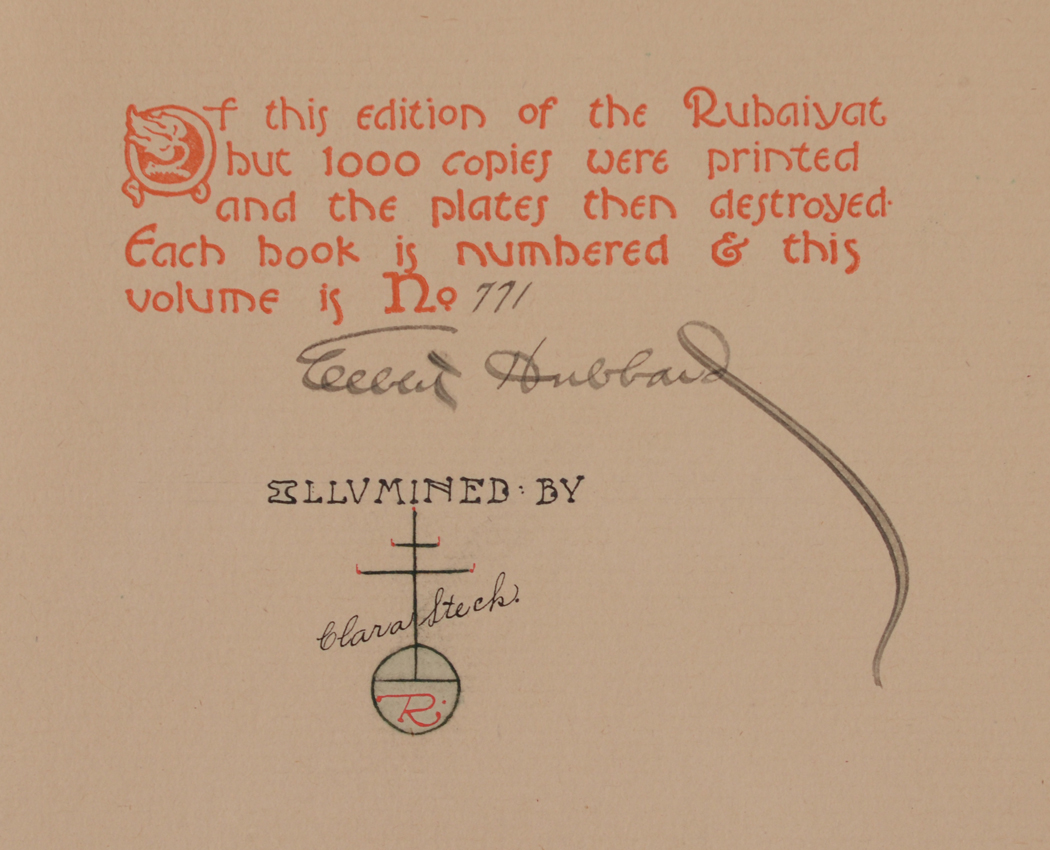 Of this edition of the Rubaiyat
but 1000 copies were printed
and the plates then destroyed.
Each book is numbered & this
volume is No 771
Elbert Hubbard
ILLVMINED : BY
Clara Steck.
R